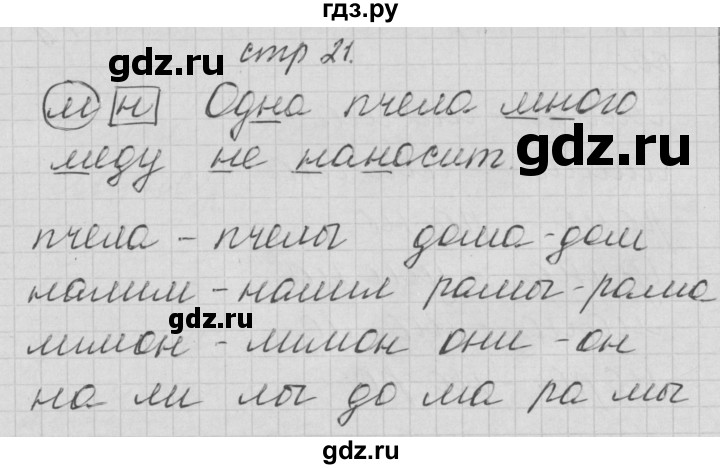 гдз.ру
стр 21.
м н Одна пчела много
меду не наносит.
пчела - пчелы дома - дом
налим - налил рамы - рама
лимон - лимон они - он
на ли лы до ма ра мы
gdz.ru
gdz.ru
gdz.ru
gdz.ru
gdz.ru